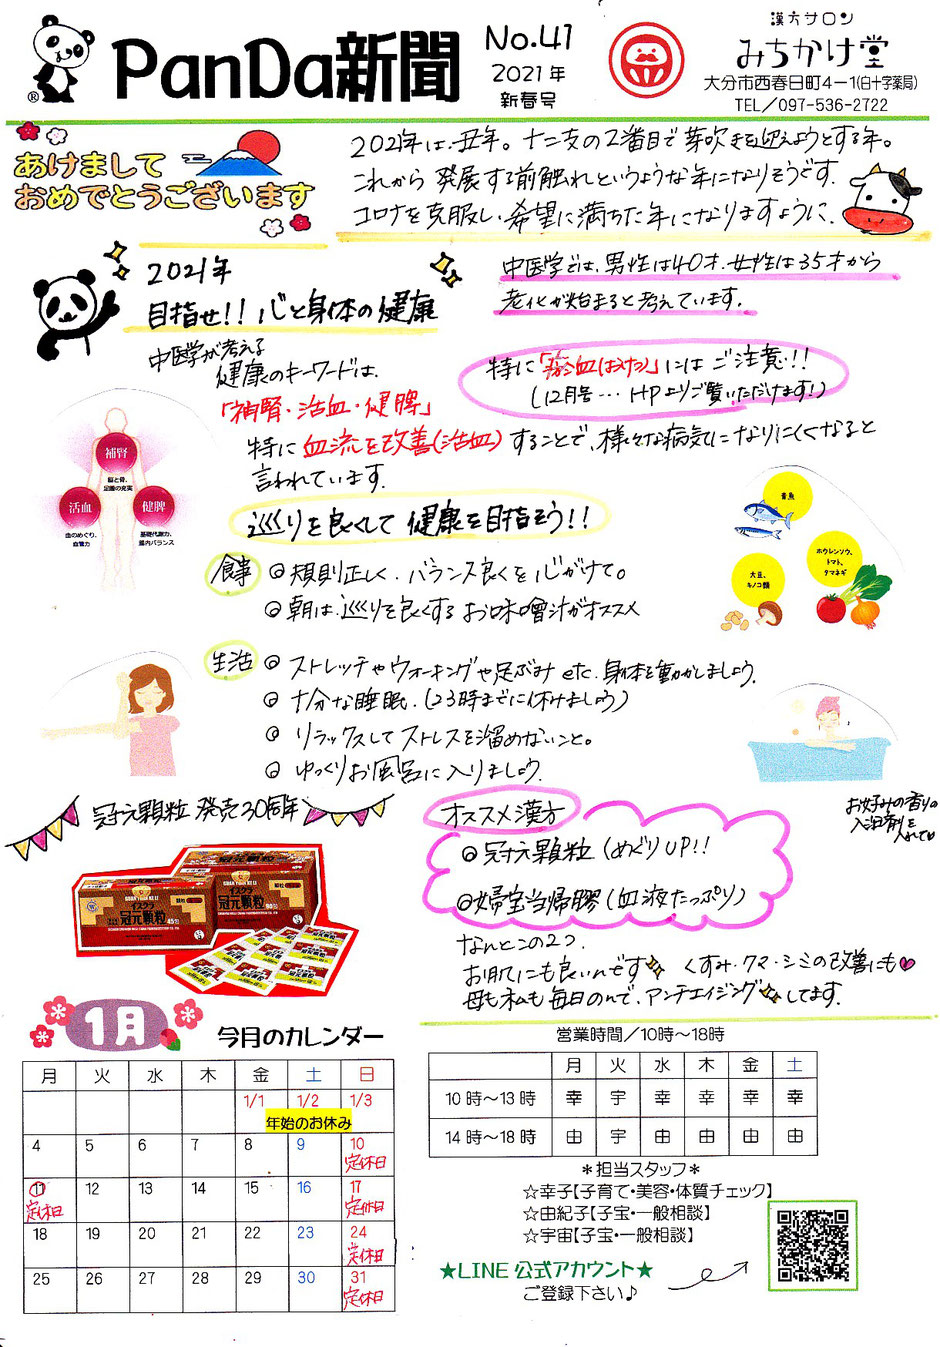 PanDa新聞
®
No.41
2021年
新春号
漢方サロン
みちかけ堂
大分市西春日町4-1(白十字薬局)
TEL/097-536-2722
あけまして
おめでとうございます
2021年は、丑年。十二支の2番目で芽吹きを迎えようとする年。
これから発展する前触れというような年になりそうです。
コロナを克服し、希望に満ちた年になりますように。
2021年
目指せ!! 心と身体の健康
中医学では、男性は40才、女性は35才から
老化が始まると考えています。
中医学が考える
健康のキーワードは、
「補腎・活血・健脾」
特に「瘀血(おけつ)」にはご注意!!
(12月号…HPよりご覧いただけます!)
特に血流を改善(活血)することで、様々な病気になりにくくなると
言われています。
巡りを良くして健康を目指そう!!
補腎
脳と骨、
足腰の充実
活血
血のめぐり、
血管力
健脾
基礎代謝力、
腸内バランス
青魚
大豆、
キノコ類
ホウレンソウ、
トマト、
タマネギ
食事
◎規則正しく、バランス良くを心がけて。
◎朝は、巡りを良くするお味噌汁がオススメ
生活
◎ストレッチやウォーキングや足ぶみetc. 身体を動かしましょう。
◎十分な睡眠。(23時までに休けましょう)
◎リラックスしてストレスを溜めないこと。
◎ゆっくりお風呂に入りましょう。
お好みの香りの
入浴剤を
入れて♡
冠元顆粒 発売30周年
イスクラ
冠元顆粒
オススメ漢方
◎冠元顆粒(めぐりUP!!
◎婦宝当帰膠(血液たっぷり)
なんとこの2つ、
お肌にも良いんです✨ くすみ・クマ・シミの改善にも♥
母も私も毎日のんで、アンチエイジング✨してます。
1月
今月のカレンダー
月 火 水 木 金 土 日
1/1 1/2 1/3
年始のお休み
4 5 6 7 8 9 10
定休日
11 12 13 14 15 16 17
定休日 定休日
18 19 20 21 22 23 24
定休日
25 26 27 28 29 30 31
定休日
営業時間/10時~18時
月 火 水 木 金 土
10時~13時 幸 宇 幸 幸 幸 幸
14時~18時 由 宇 由 由 由 由
*担当スタッフ*
☆幸子【子育て・美容・体質チェック】
☆由紀子【子宝・一般相談】
☆宇宙【子宝・一般相談】
★LINE公式アカウント★
ご登録下さい♪